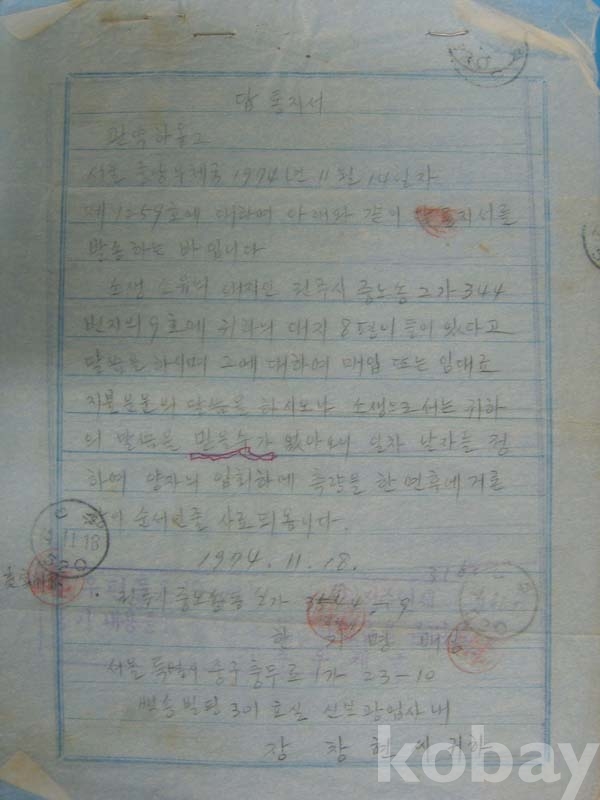 답 통지서
서울 중앙우체국 1974년 11월 14일자
제1259호에 대하여 아래와 같이 통지서를
발송하는 바입니다
소생 소유의 대지인 전주시 중노송 2가 344
번지의 9호에 귀하의 대지 8평이 들어 있다고
말씀을 하시며 그에 대하여 매입 또는 임대료
지불운운의 말씀을 하시오나 소생으로서는 귀하
의 말씀을 믿을수가 없아오니 일자 날자를 정
하여 양자의 입회하에 측량을 한 연후에 거론
순서인줄 사료되옵니다.
1974. 11. 18.
11 18
20
9
한 배상
서울 특별시 중구 충무로 1가 23-10
빌딩 301호실 내
장 창 현 귀하
kobay